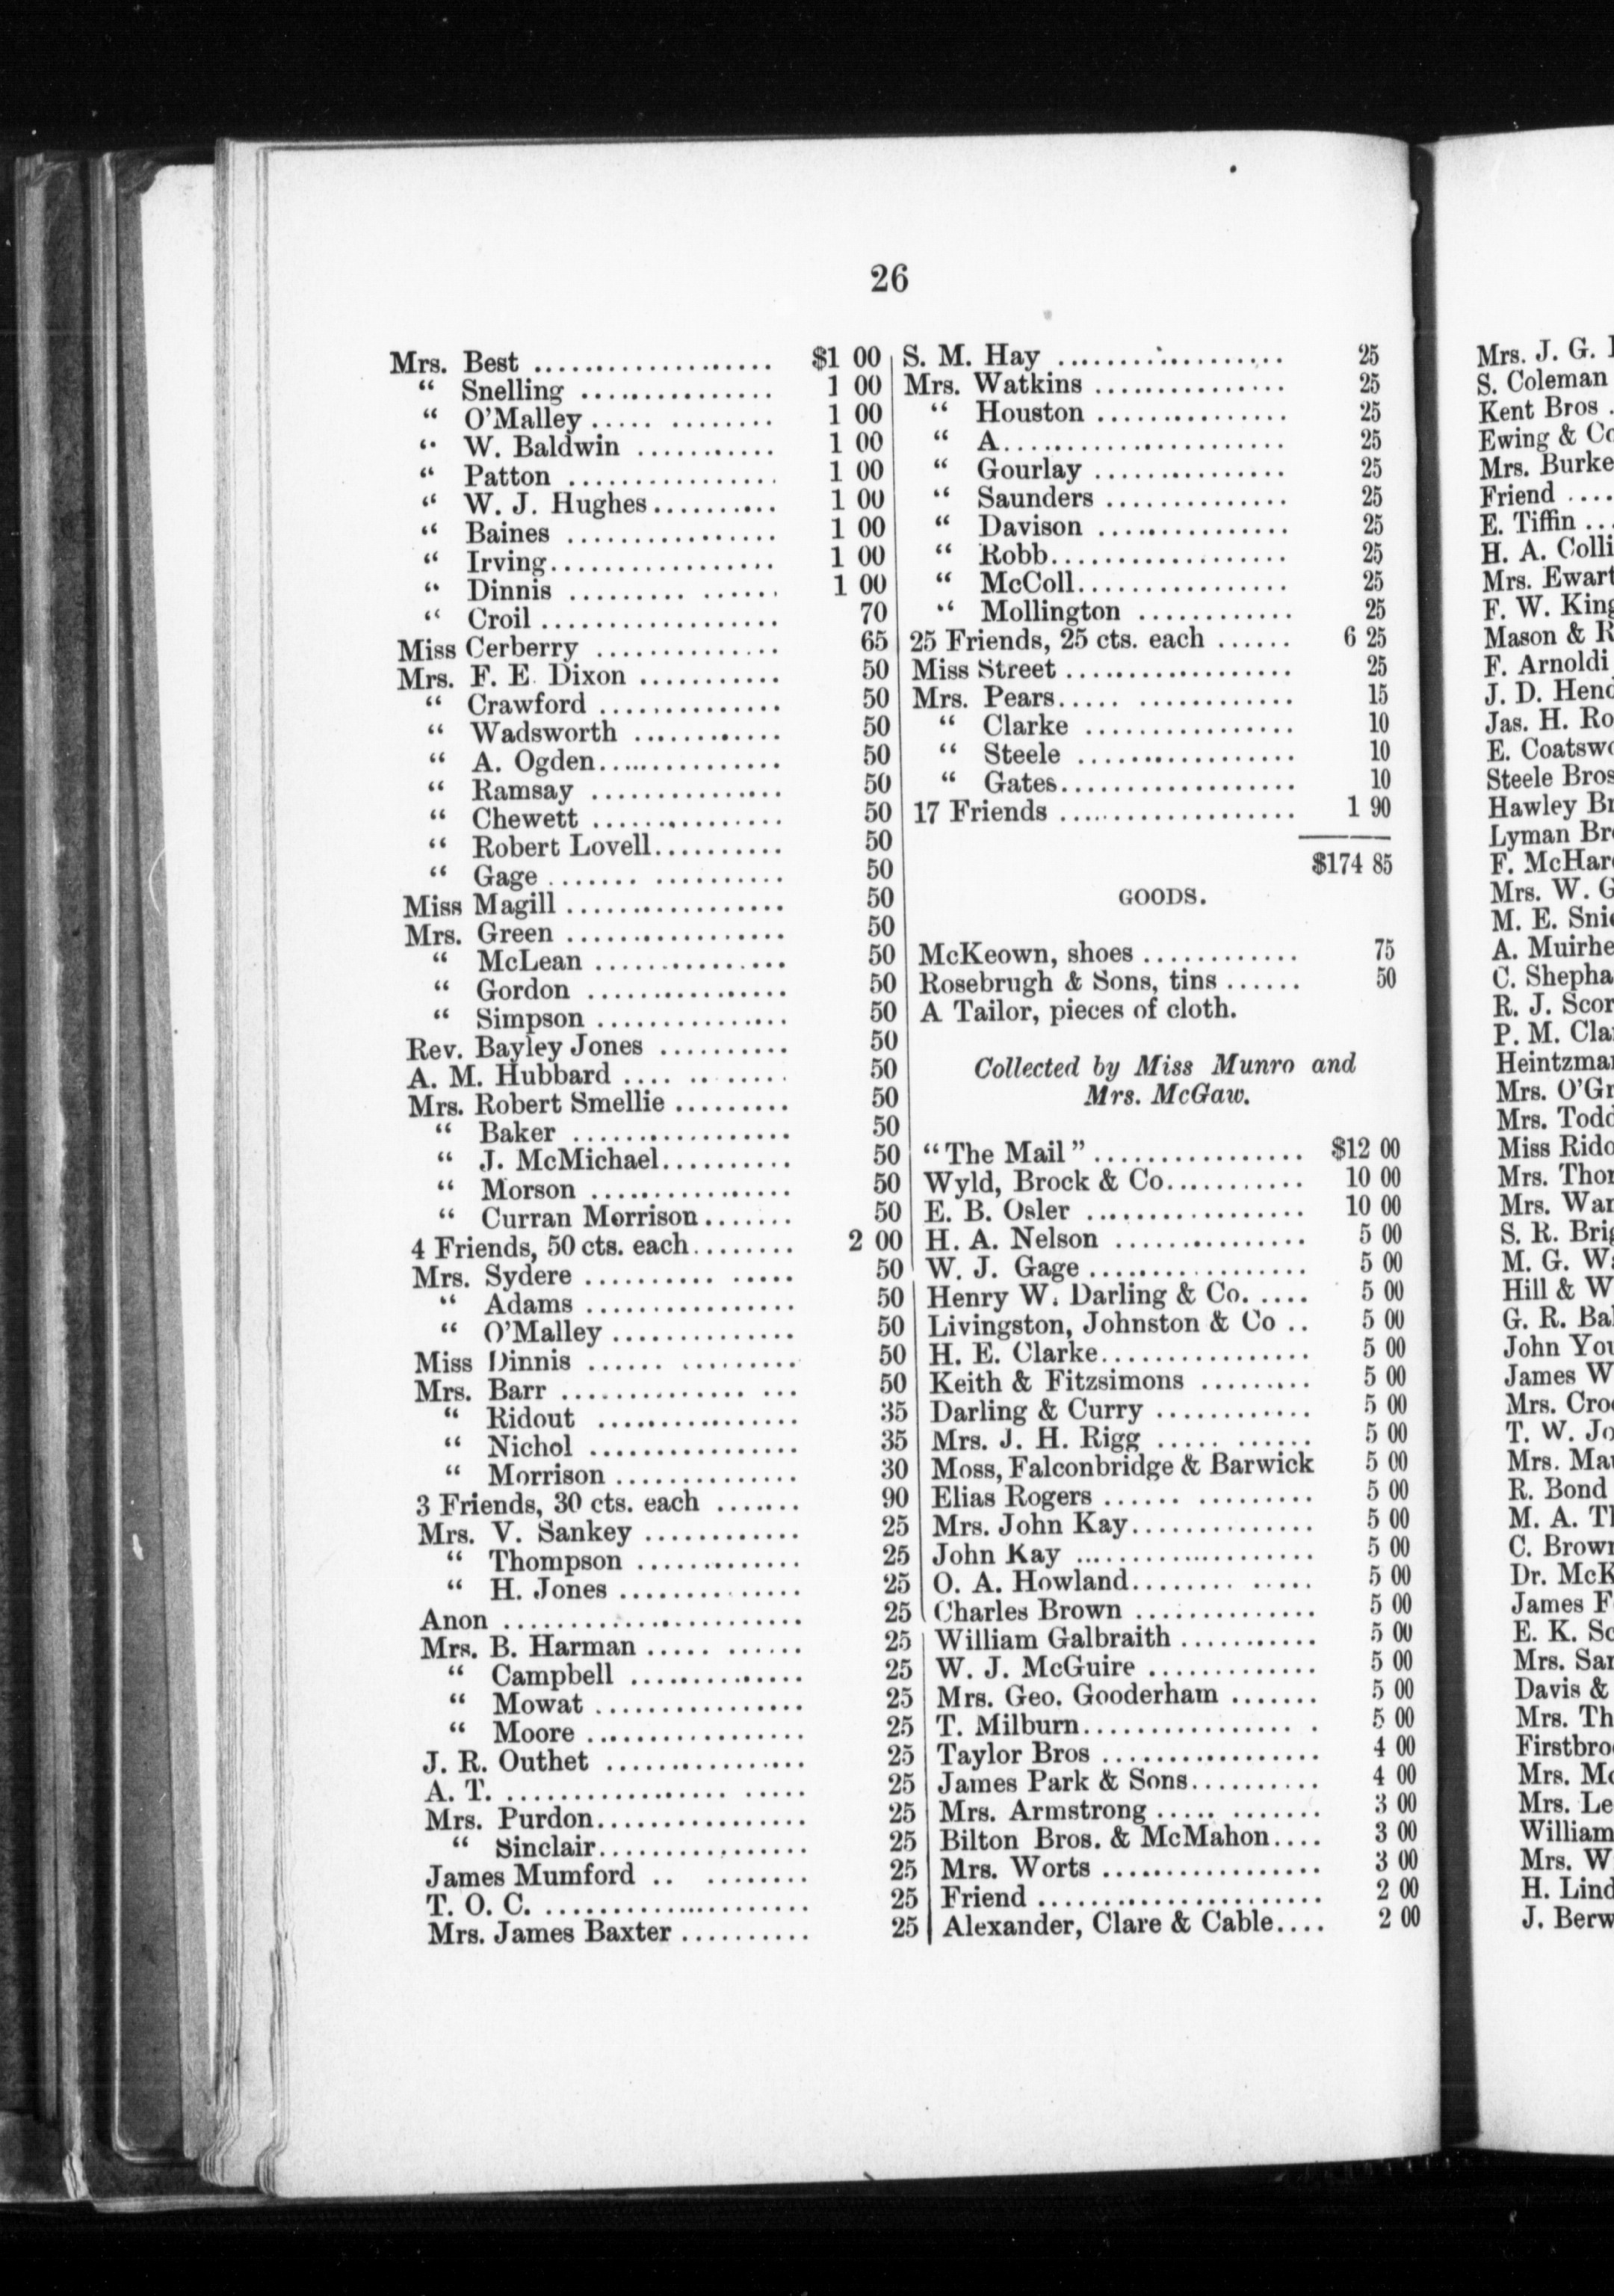 26
Mrs. Best .................... $1 00
“ Snelling ............... 1 00
“ O'Malley ..... ........ 1 00
“ W. Baldwin ........... 1 00
“ Patton ................ 1 00
“ W. J. Hughes.......... 1 00
“ Baines ................ 1 00
“ Irving.................. 1 00
“ Dinnis ......... ...... 1 00
“ Croil ................... 70
Miss Cerberry ............... 65
Mrs. F. E. Dixon ........... 50
“ Crawford .............. 50
“ Wadsworth ............ 50
“ A. Ogden.............. 50
“ Ramsay ............... 50
“ Chewett ............... 50
“ Robert Lovell.......... 50
“ Gage ....... .......... 50
Miss Magill ................. 50
Mrs. Green ................. 50
“ McLean ............... 50
“ Gordon ................ 50
“ Simpson ............... 50
Rev. Bayley Jones .......... 50
A. M. Hubbard .... .. ..... 50
Mrs. Robert Smellie ......... 50
“ Baker ................. 50
“ J. McMichael.......... 50
“ Morson ................ 50
“ Curran Morrison....... 50
4 Friends, 50 cts. each........ 2 00
Mrs. Sydere .......... ..... 50
“ Adams ................ 50
“ O'Malley .............. 50
Miss Dinnis ...... ......... 50
Mrs. Barr .............. ... 50
“ Ridout ................ 35
“ Nichol ................ 35
“ Morrison .............. 30
3 Friends, 30 cts. each ....... 90
Mrs. V. Sankey ............ 25
“ Thompson ............. 25
“ H. Jones .............. 25
Anon ........................ 25
Mrs. B. Harman ..... ...... 25
“ Campbell .............. 25
“ Mowat ................ 25
“ Moore ................. 25
J. R. Outhet ................ 25
A. T. .................. ..... 25
Mrs. Purdon................. 25
“ Sinclair................. 25
James Mumford .. ........ 25
T. O. C. ..................... 25
Mrs. James Baxter .......... 25
S. M. Hay .................. 25
Mrs. Watkins ............... 25
“ Houston ............... 25
“ A...................... 25
“ Gourlay ............... 25
“ Saunders .............. 25
“ Davison ............... 25
“ Robb................... 25
“ McColl................. 25
“ Mollington ............ 25
25 Friends, 25 cts. each ...... 6 25
Miss Street .................. 25
Mrs. Pears..... ............ 15
“ Clarke ................ 10
“ Steele ................. 10
“ Gates.................. 10
17 Friends ................... 1 90
$174 85
GOODS.
McKeown, shoes ............ 75
Rosebrugh & Sons, tins ...... 50
A Tailor, pieces of cloth.
Collected by Miss Munro and
Mrs. McGaw.
“The Mail” ................ $12 00
Wyld, Brock & Co........... 10 00
E. B. Osler ................. 10 00
H. A. Nelson ............... 5 00
W. J. Gage ................. 5 00
Henry W. Darling & Co. .... 5 00
Livingston, Johnston & Co .. 5 00
H. E. Clarke................ 5 00
Keith & Fitzsimons ......... 5 00
Darling & Curry ............ 5 00
Mrs. J. H. Rigg ..... ...... 5 00
Moss, Falconbridge & Barwick 5 00
Elias Rogers ...... ......... 5 00
Mrs. John Kay.............. 5 00
John Kay ................... 5 00
O. A. Howland........ ..... 5 00
Charles Brown .............. 5 00
William Galbraith ........... 5 00
W. J. McGuire ............. 5 00
Mrs. Geo. Gooderham ....... 5 00
T. Milburn................ . 5 00
Taylor Bros ................. 4 00
James Park & Sons.......... 4 00
Mrs. Armstrong ..... ....... 3 00
Bilton Bros. & McMahon.... 3 00
Mrs. Worts ................. 3 00
Friend ...................... 2 00
Alexander, Clare & Cable.... 2 00
Mrs. J. G.
S. Coleman
Kent Bros .
Ewing &
Mrs. Burke
Friend ....
E. Tiffin ...
H. A.
Mrs. Ewart
F. W.
Mason &
F. Arnoldi
J. D.
Jas. H.
E.
Steele Bros
Hawley
Lyman
F.
Mrs. W.
M. E.
A.
C.
R. J.
P. M.
Mrs.
Mrs.
Miss
Mrs.
Mrs.
S. R.
M. G.
Hill &
G. R.
John
James
Mrs.
T. W.
Mrs.
R. Bond
M. A.
C.
Dr.
James
E. K.
Mrs.
Davis &
Mrs.
Mrs.
Mrs.
William
Mrs.
H.
J.